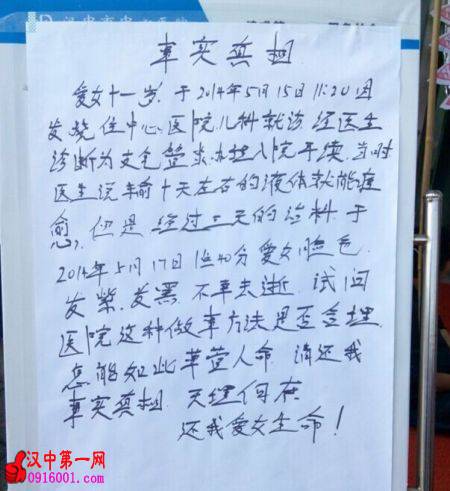 事实真相
爱女十一岁，于2014年5月15日11:20因
发烧住中心医院儿科就诊，经医生
诊断为支气管炎，办理入院手续，当时
医生说输十天左右的液体就能痊
愈，但是经过三天的治料于
2014年5月17日 40分爱女脸色
发紫、发黑 不幸去逝，试问
医院这种做事方法是否合理
怎能如此草菅人命 请还我
事实真相 天理何在
还我爱女生命！
汉中第一网
0916001.com